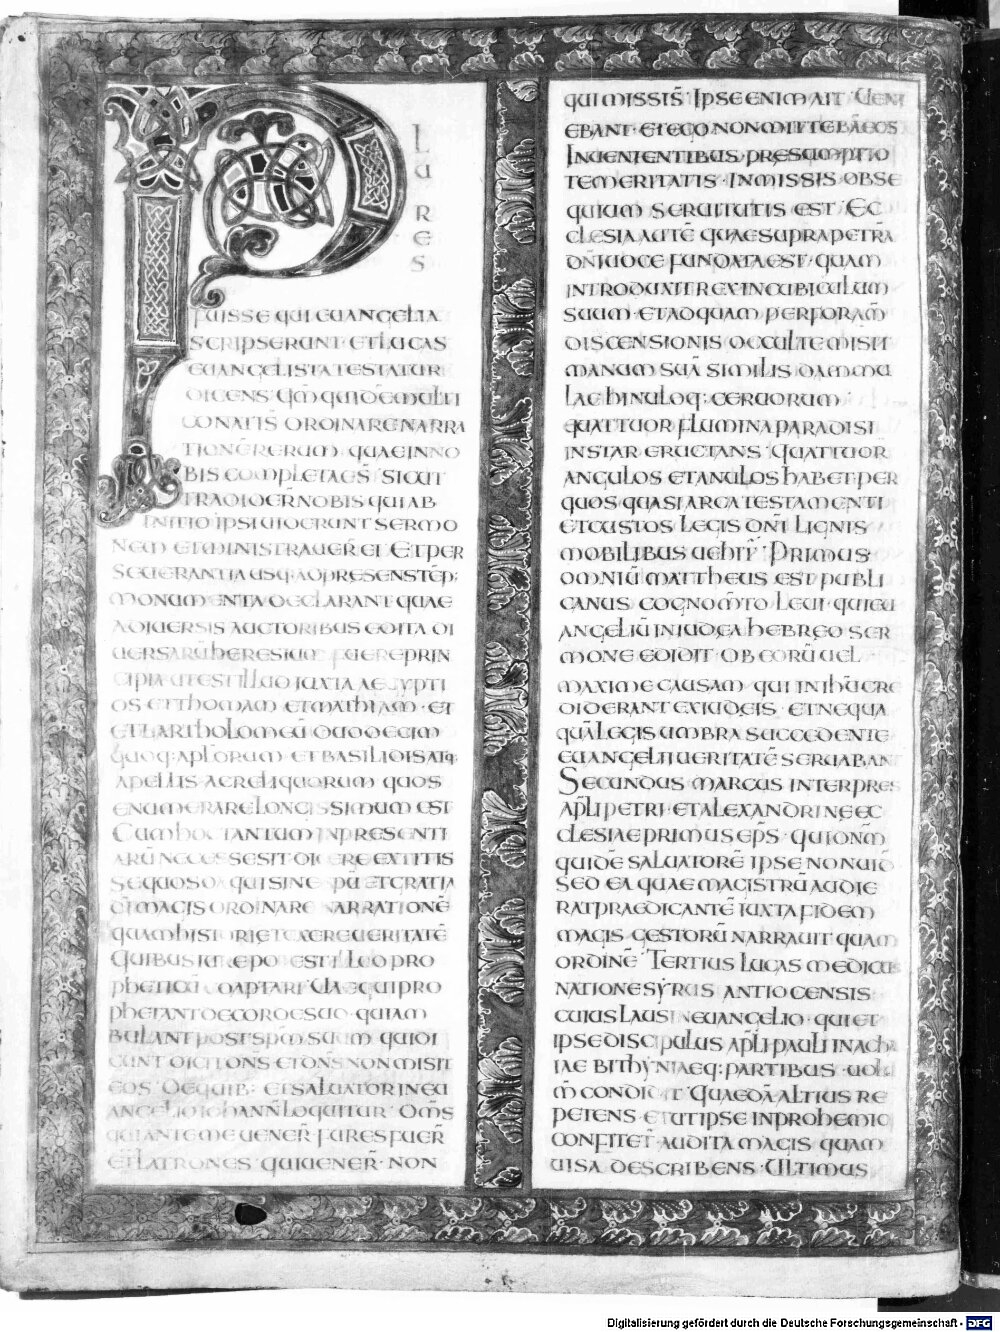 P
L
U
R
E
S
FUISSE QUI EUANGELIA
SCRIPSERUNT · ET LUCAS
EUANGELISTA TESTATUR
DICENS QM̄ QUIDĒ MULTI
CONATI S̄ ORDINARE NARRA
TIONĒ RERUM · QUAE IN NO
BIS COMPLETAE S̄ · SICUT
TRADIDER̄ NOBIS QUI AB
INITIO IPSI UIDERUNT SERMO
NEM ET MINISTRAUER̄ EI ET PER
SEUERANTIA USQ· AD PRESENS TĒP;
MONUMENTA DECLARANT QUAE
A DIUERSIS AUCTORIBUS EDITA DI
UERSARŪ HERESIUM FUERE PRIN
CIPIA UT EST ILLUD IUXTA AEGYPTI
OS ET THOMAM ET MATHIAM · ET
ET BARTHOLOMEŪ DUODECIM
QUOQ· APL̄ORUM ET BASILIDIS ATQ·
APELLIS AC RELIQUORUM QUOS
ENUMERARE LONGISSIMUM EST
CUM HOC TANTUM IN PRESENTI
ARŪ NECCESSE SIT DICERE EXTITIS
SE QUOSDĀ QUI SINE SPŪ ET GRATIA
DĪ MAGIS ORDINARE NARRATIONĒ
QUAM HISTORIE TEXERE UERITATĒ
QUIBUS IURE POTEST ILLUD PRO
PHETICŪ COAPTARI UAE QUI PRO
PHETANT DE CORDE SUO · QUI AM
BULANT POST SPM̄ SUUM QUI DI
CUNT DICIT DN̄S ET DN̄S NON MISIT
EOS DE QUIB; ET SALUATOR IN EU
ANGELIO IOHANN̄ LOQUITUR OMS̄
QUI ANTE ME UENER̄ FURES FUER̄
ET LATRONES QUI UENER̄ · NON
QUI MISSI S̄ IPSE ENIM AIT UENI
EBANT · ET EGO NON MITTEBĀ EOS
IN UENIENTIBUS PRESUMPTIO
TEMERITATIS · IN MISSIS OBSE
QUIUM SERUITUTIS EST · EC
CLESIA AUTĒ QUAE SUPRA PETRĀ
DN̄I UOCE FUNDATA EST · QUAM
INTRODUXIT REX IN CUBICULUM
SUUM · ET AD QUAM PER FORAM̄
DISCENSIONIS OCCULTE MISIT
MANUM SUĀ SIMILIS DAMMU
LAE HINULOQ; CERUORUM ·
QUATTUOR FLUMINA PARADISI
INSTAR ERUCTANS · QUATTUOR
ANGULOS ET ANULOS HABET · PER
QUOS QUASI ARCA TESTAMENTI
ET CUSTOS LEGIS DN̄I LIGNIS
MOBILIBUS UEHIT̄ · PRIMUS
OMNIŪ MATTHEUS EST PUBLI
CANUS COGNOM̄TO LEUI · QUI EU
ANGELIŪ IN IUDEA HEBREO SER
MONE EDIDIT · OB EORŪ UEL
MAXIME CAUSAM QUI IN IHM̄ CRE
DIDERANT EX IUDEIS · ET NEQUA
QUĀ LEGIS UMBRA SUCCEDENTE
EUANGELII UERITATĒ SERUABANT
SECUNDUS MARCUS INTERPRES
APL̄I PETRI · ET ALEXANDRINE EC
CLESIAE PRIMUS EPS̄ · QUI DNM̄
QUIDĒ SALUATORĒ IPSE NON UID̄
SED EA QUAE MAGISTRŪ AUDIE
RAT PRAEDICANTĒ IUXTA FIDEM
MAGIS GESTORŪ NARRAUIT QUAM
ORDINĒ TERTIUS LUCAS MEDICUS
NATIONE SYRUS ANTIOCENSIS ·
CUIUS LAUS IN EUANGELIO · QUI ET
IPSE DISCIPULUS APL̄I PAULI IN ACHA
IAE BITHYNIAEQ; PARTIBUS · UOLU
M̄ CONDIDIT · QUAEDĀ ALTIUS RE
PETENS · ET UT IPSE IN PROHEMIO
CONFITET̄ AUDITA MAGIS QUAM
UISA DESCRIBENS · ULTIMUS
Digitalisierung gefördert durch die Deutsche Forschungsgemeinschaft - DFG